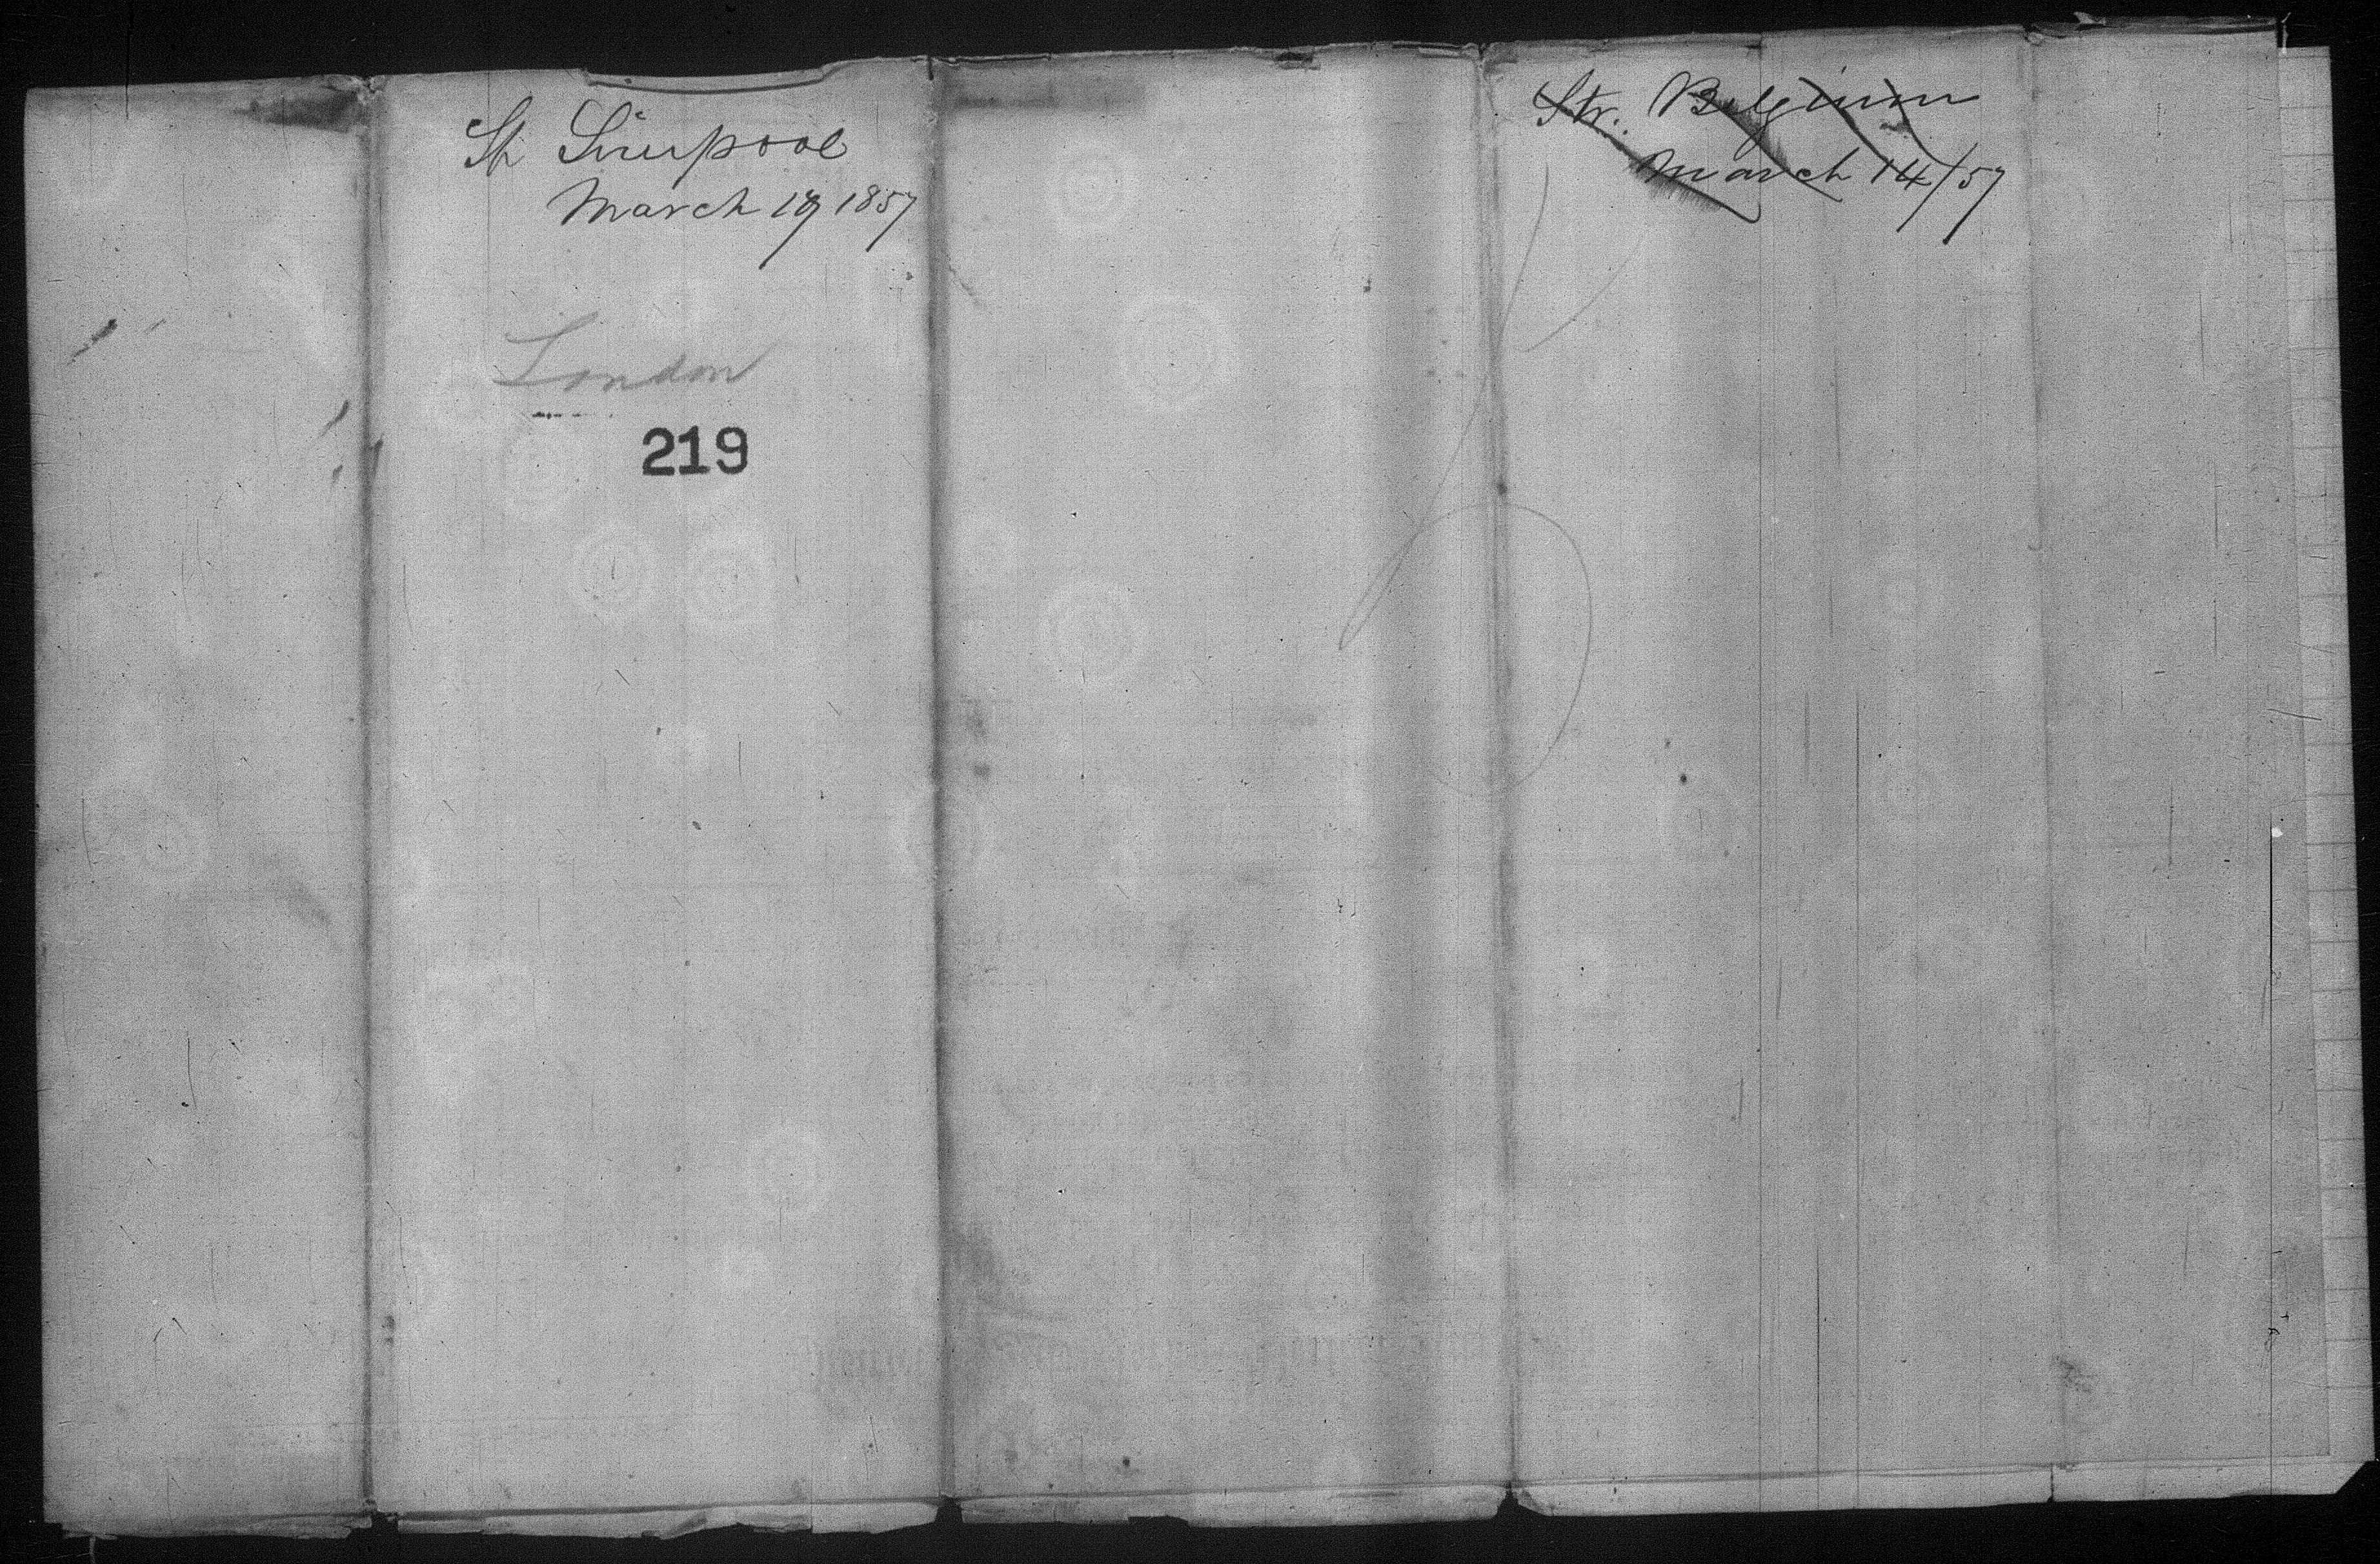 Sh Liverpool
March 19 1857
London
219
Str. Belgium
March 14/57